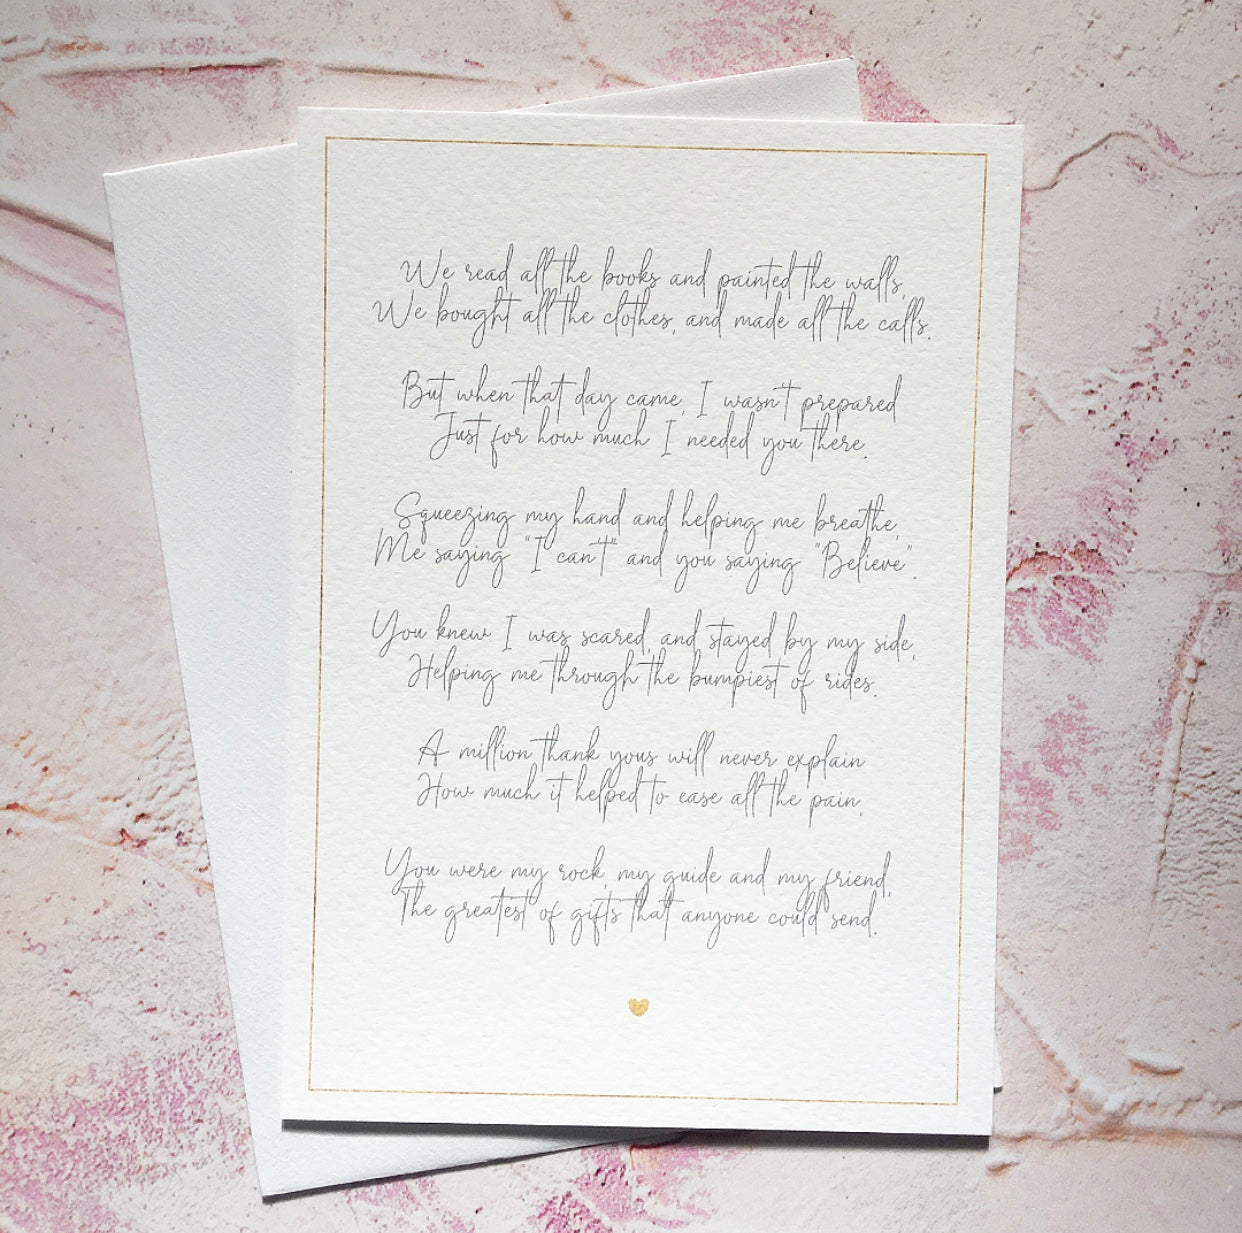 We read all the books and painted the walls,
We bought all the clothes, and made all the calls.
But when that day came, I wasn't prepared
Just for how much I needed you there.
Squeezing my hand and helping me breathe,
Me saying "I can't" and you saying "Believe".
You knew I was scared, and stayed by my side,
Helping me through the bumpiest of rides.
A million thank yous will never explain
How much it helped to ease all the pain,
You were my rock, my guide and my friend,
The greatest of gifts that anyone could send.